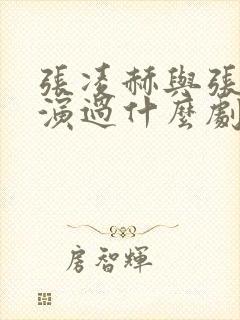 張凌赫與張
演過什麼劇
房智輝